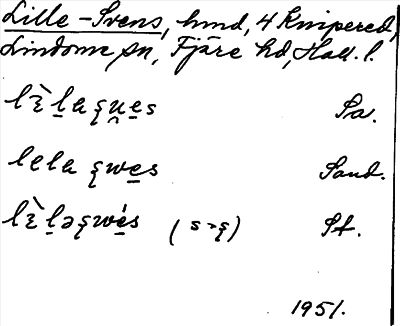 Lille-Svens, hmd, 4 Knipered,
Lindome sn, Fjäre hd, Hall. l.
Sa.
lela ȿwe̲s Sand.
(s > ȿ) St.
1951.